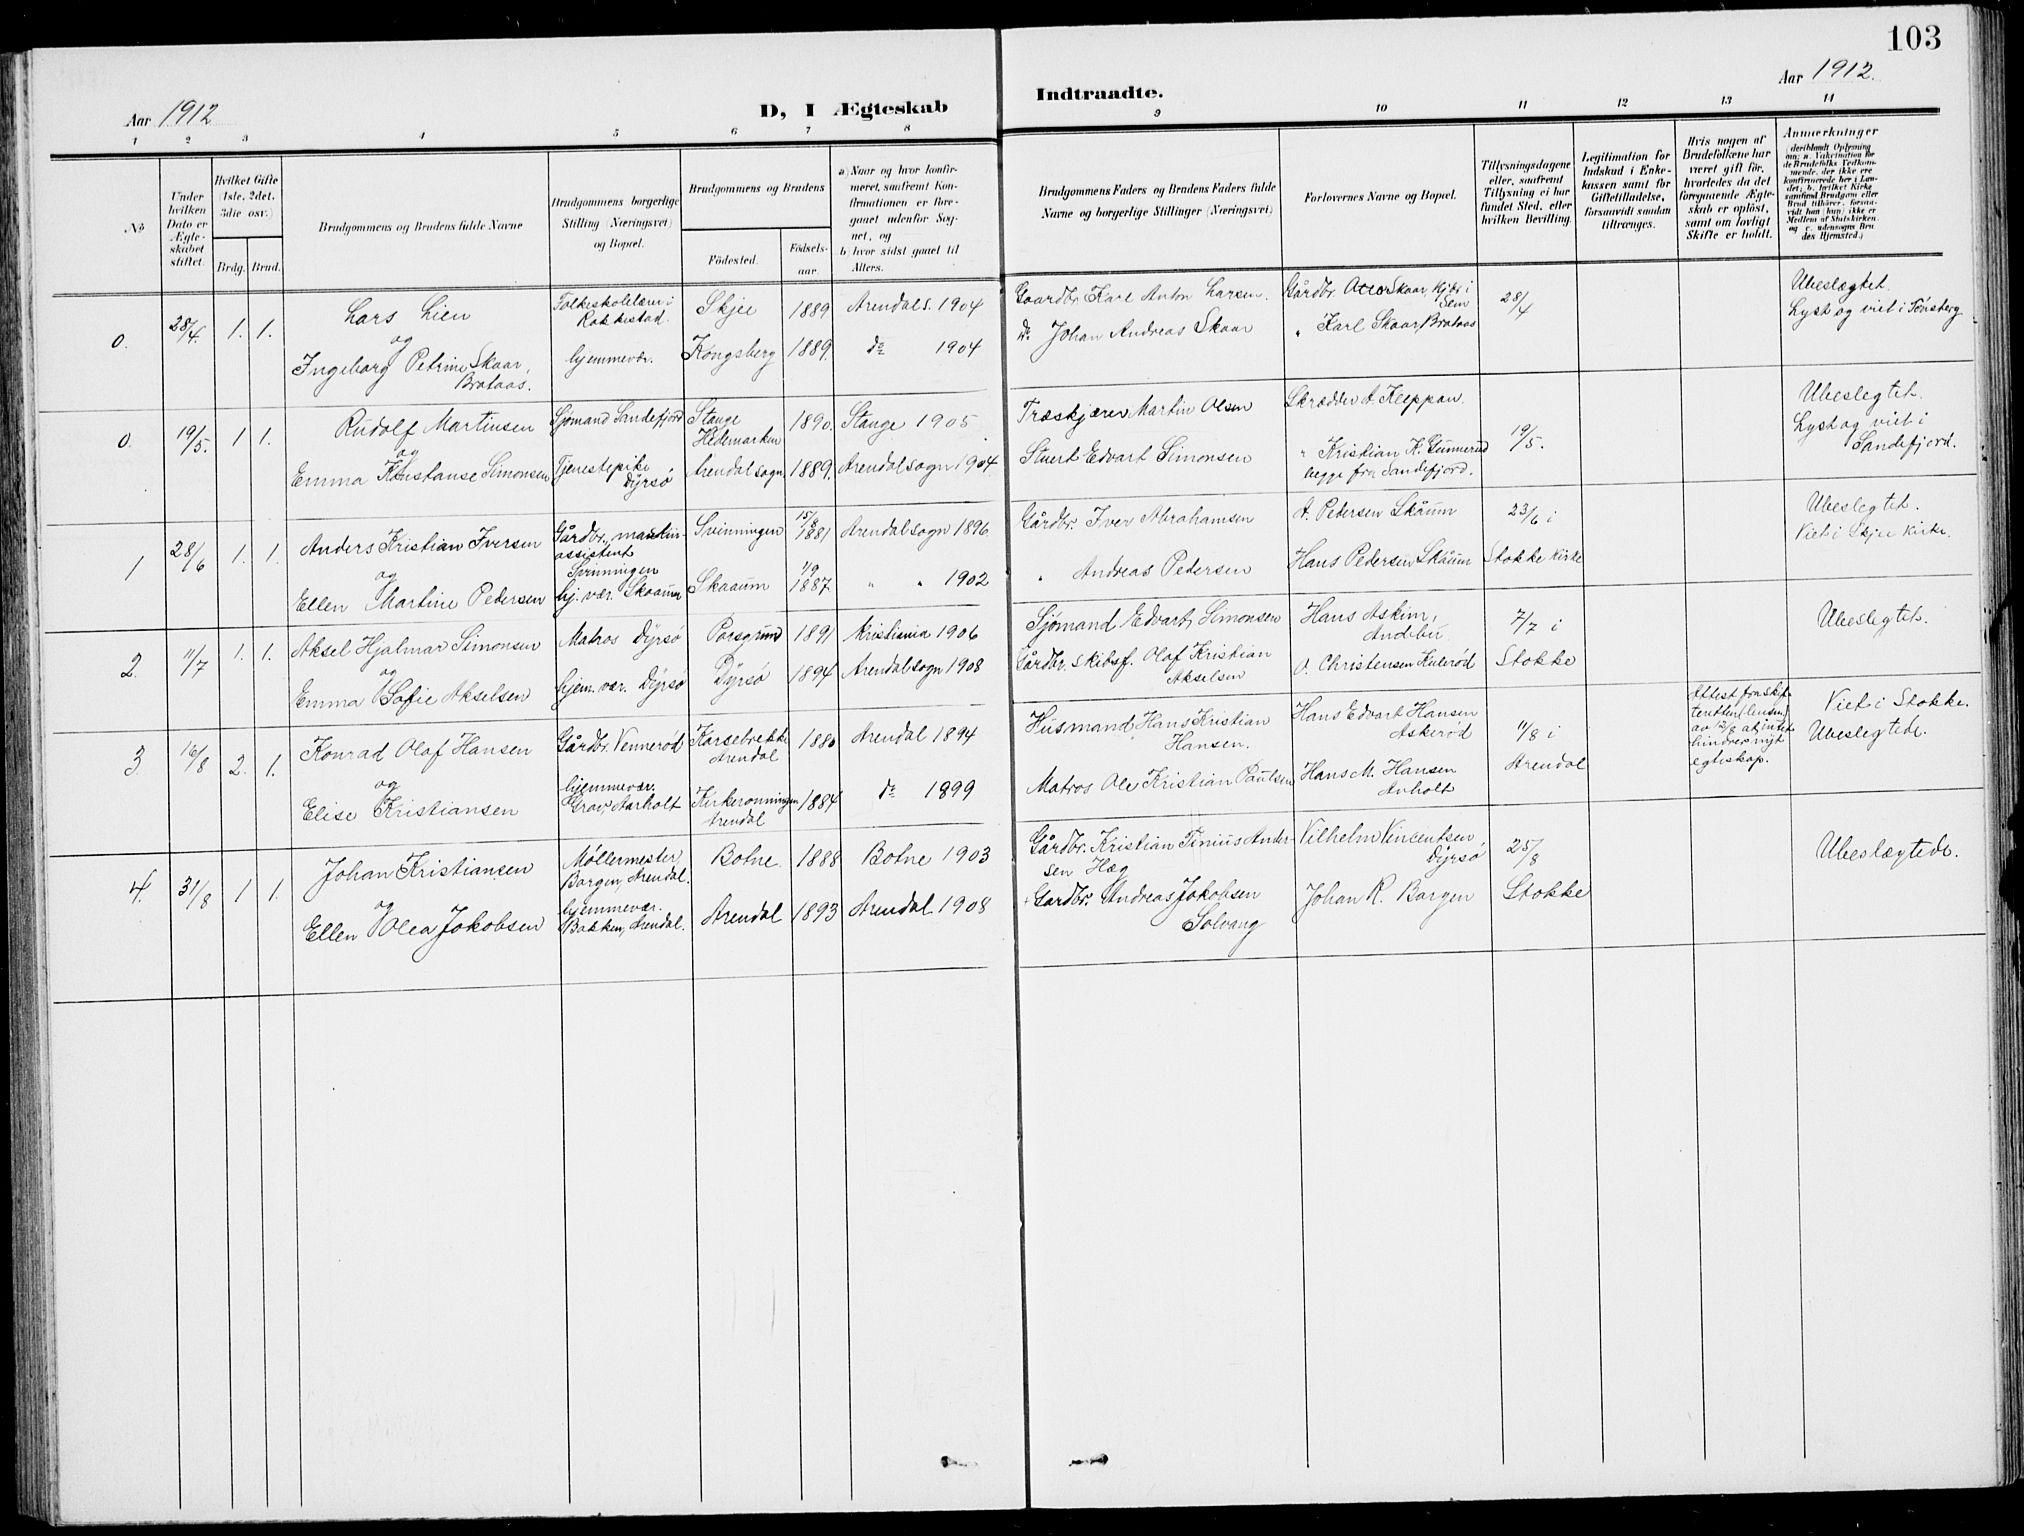 103
Aar 1912
D, I Ægteskab
Indtraadte.
Aar 1912.
1 2 3 4 5 6 7 8 9 10 11 12 13 14
No
Under hvilken Dato er Ægteskabet stiftet.
Hvilket Gifte (1ste, 2det, 3die osv.)
Brdg. Brud.
Brudgommens og Brudens fulde Navne
Brudgommens borgerlige Stilling (Næringsvei) og Bopæl.
Brudgommens og Brudens
Fødested.
Fødselsaar.
a) Naar og hvor konfirmeret, saafremt Konfirmationen er foregaaet udenfor Sognet, og
b) hvor sidst gaaet til Alters.
Brudgommens Faders og Brudens Faders fulde Navne og borgerlige Stillinger (Næringsvei)
Forlovernes Navne og Bopæl.
Tillysningsdagene eller, saafremt Tillysning ei har fundet Sted, efter hvilken Bevilling.
Legitimation for Indskud i Enkekassen samt for Giftetilladelse, forsaavidt saadan tiltrænges.
Hvis nogen af Brudefolkene har været gift før, hvorledes da det foregaaende Ægteskab er opløst, samt om lovligt Skifte er holdt.
Anmerkninger (deriblandt Oplysning om: a. Vakcination for de Brudefolks Vedkommende, der ikke ere konfirmerede her i Landet; b. hvilket Kirkesamfund Brudgom eller Brud tilhører, forsaavidt han (hun) ikke er Medlem af Statskirken, og c. udensogns Brudes Hjemsted.)
0. 28/4. 1. 1.
Lars Lien
og
Ingeborg Petrine Skaar,
Brataas.
Folkeskolelærer i
Rakkestad.
hjemmevær.
Skjee 1889 Arendals. 1904
Kongsberg 1889. do 1904
Gaardbr. Karl Anton Larsen.
do. Johan Andreas Skaar
Gårdbr. Skaar, Kjær i
Sem
" Karl Skaar, Brataas
28/4
Ubeslægtet.
Lyst og viet i Tønsberg
0. 19/5. 1 1.
Rudolf Martinsen
og
Emma Konstanse Simonsen
Sjømand Sandefjord
Tjenestepike
Dyrsø
Stange
Hedemarken
1890. Stange 1905
Arendal sogn 1889. Arendal sogn 1904.
Træskjærer Martin Olsen
Stuert Edvart Simonsen
Skrædder A. Kleppan.
" Kristian K. Gunnerud
begge fra Sandefjord.
19/5.
Ubeslegtet.
Lyst og viet i
Sandefjord.
1 28/6 1. 1.
Anders Kristian Iversen
og
Ellen Martine Pedersen
Gårdbr., maskinassistent
Svinningen
hj. vær. Skaaum
Svinningen 15/8 1881 Arendal sogn 1896.
Skaaum 1/9 1887 " " 1902
Gårdbr. Iver Abrahamsen
" Andreas Pedersen
A. Pedersen Skåum
Hans Pedersen Skåum
23/6 i
Stokke kirke
Ubeslegtet.
Viet i Skjee kirke.
2. 11/7 1. 1.
Aksel Hjalmar Simonsen
og
Emma Sofie Akselsen
Matros Dyrsø
hjem. vær. Dyrsø
Porsgrund 1891 Kristiania 1906
Dyrsø 1894 Arendal sogn 1908
Sjømand Edvart Simonsen
Gårdbr. skibsf. Olaf Kristian
Akselsen
Hans Askim,
Andebu
O. Christensen Hulerød
7/7 i
Stokke
Ubeslegtet.
3. 16/8 2. 1.
Konrad Olaf Hansen
og
Elise Kristiansen
Gårdbr. Vennerød
hjemmevær.
Grav, Aarholt
Karsebrekke
Arendal
1880 Arendal 1894
Kirkerønningen
Arendal
1884 do 1899
Husmand Hans Kristian
Hansen.
Matros Ole Kristian Paulsen
Hans Edvart Hansen
Askerød
Hans M. Hansen
Arholt
11/8 i
Arendal
Attest fra skifteretten
av 12/8 at intet
hindrer nyt
egteskap.
Viet i Stokke.
Ubeslegtede.
4. 31/8 1 1.
Johan Kristiansen
og
Ellen Olea Jakobsen
Møllermester
Borgen, Arendal.
hjemmevær.
Bakken, Arendal.
Botne. 1888 Botne 1903
Arendal 1893 Arendal 1908
Gårdbr. Kristian Tinius Andersen Hæg
Gardbr. Andreas Jakobsen
Solvang
Vilhelm Vincentsen
Dyrsø
Johan R. Borgen
25/8
Stokke
Ubeslægtede.